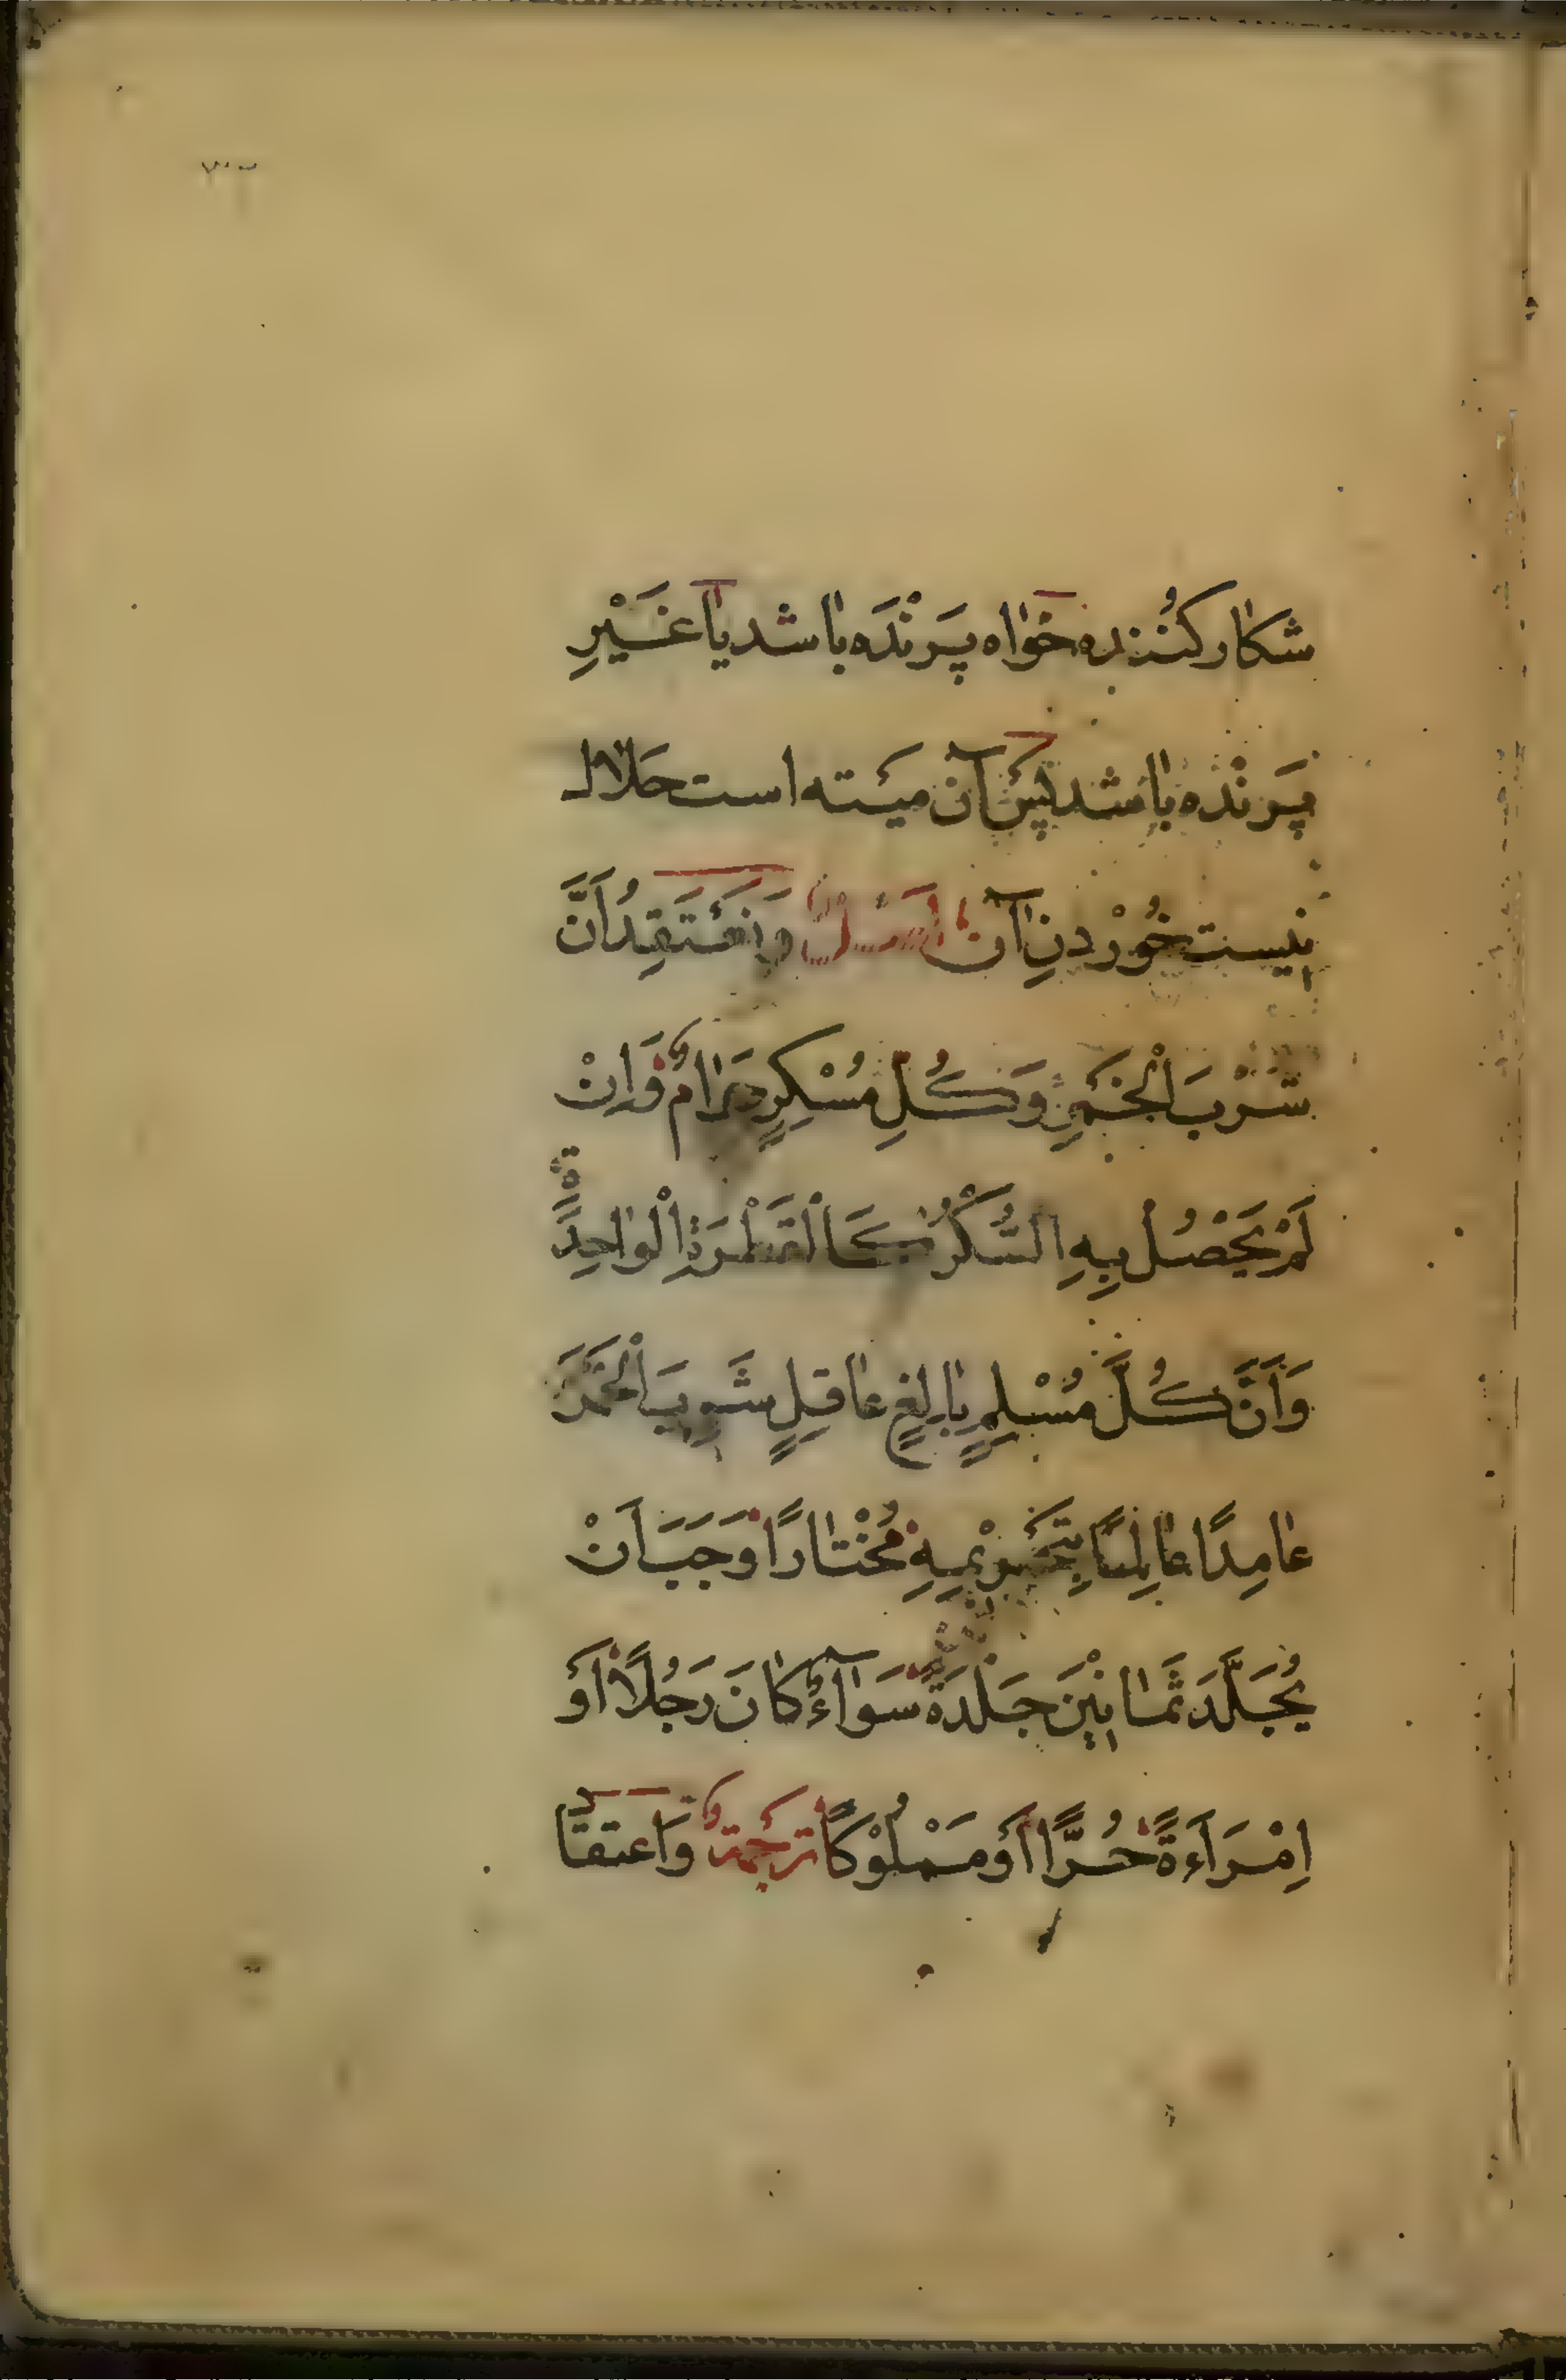 شكار كُنَنده خَواه پَرَنْدَه باشد يا غَيْرِ
پَرَنْده باشد پس آن ميته است حَلال
نيست خُوْردنِ آن اَصْلٌ وَنَعْتَقِدُ اَنَّ
شُرْبَ الْخَمْرِ وَكُلِّ مُسْكِرٍ حَرَامٌ وَاِنْ
لَمْ يَحْصُلْ بِهِ السُّكْرُ كَالْقَطْرَةِ الْوَاحِدَةِ
وَاَنَّ كُلَّ مُسْلِمٍ بَالِغٍ عَاقِلٍ شَرِبَ الْخَمْرَ
عَامِدًا عَالِمًا بِتَحْرِيْمِهِ مُخْتَارًا وَجَبَ اَنْ
يُجَلَّدَ ثَمَانِيْنَ جَلْدَةً سَوَآءٌ كَانَ رَجُلًا اَوْ
اِمْرَاَءةً حُرًّا اَوْ مَمْلُوْكًا تَرجَمَةٌ وَاعتقا